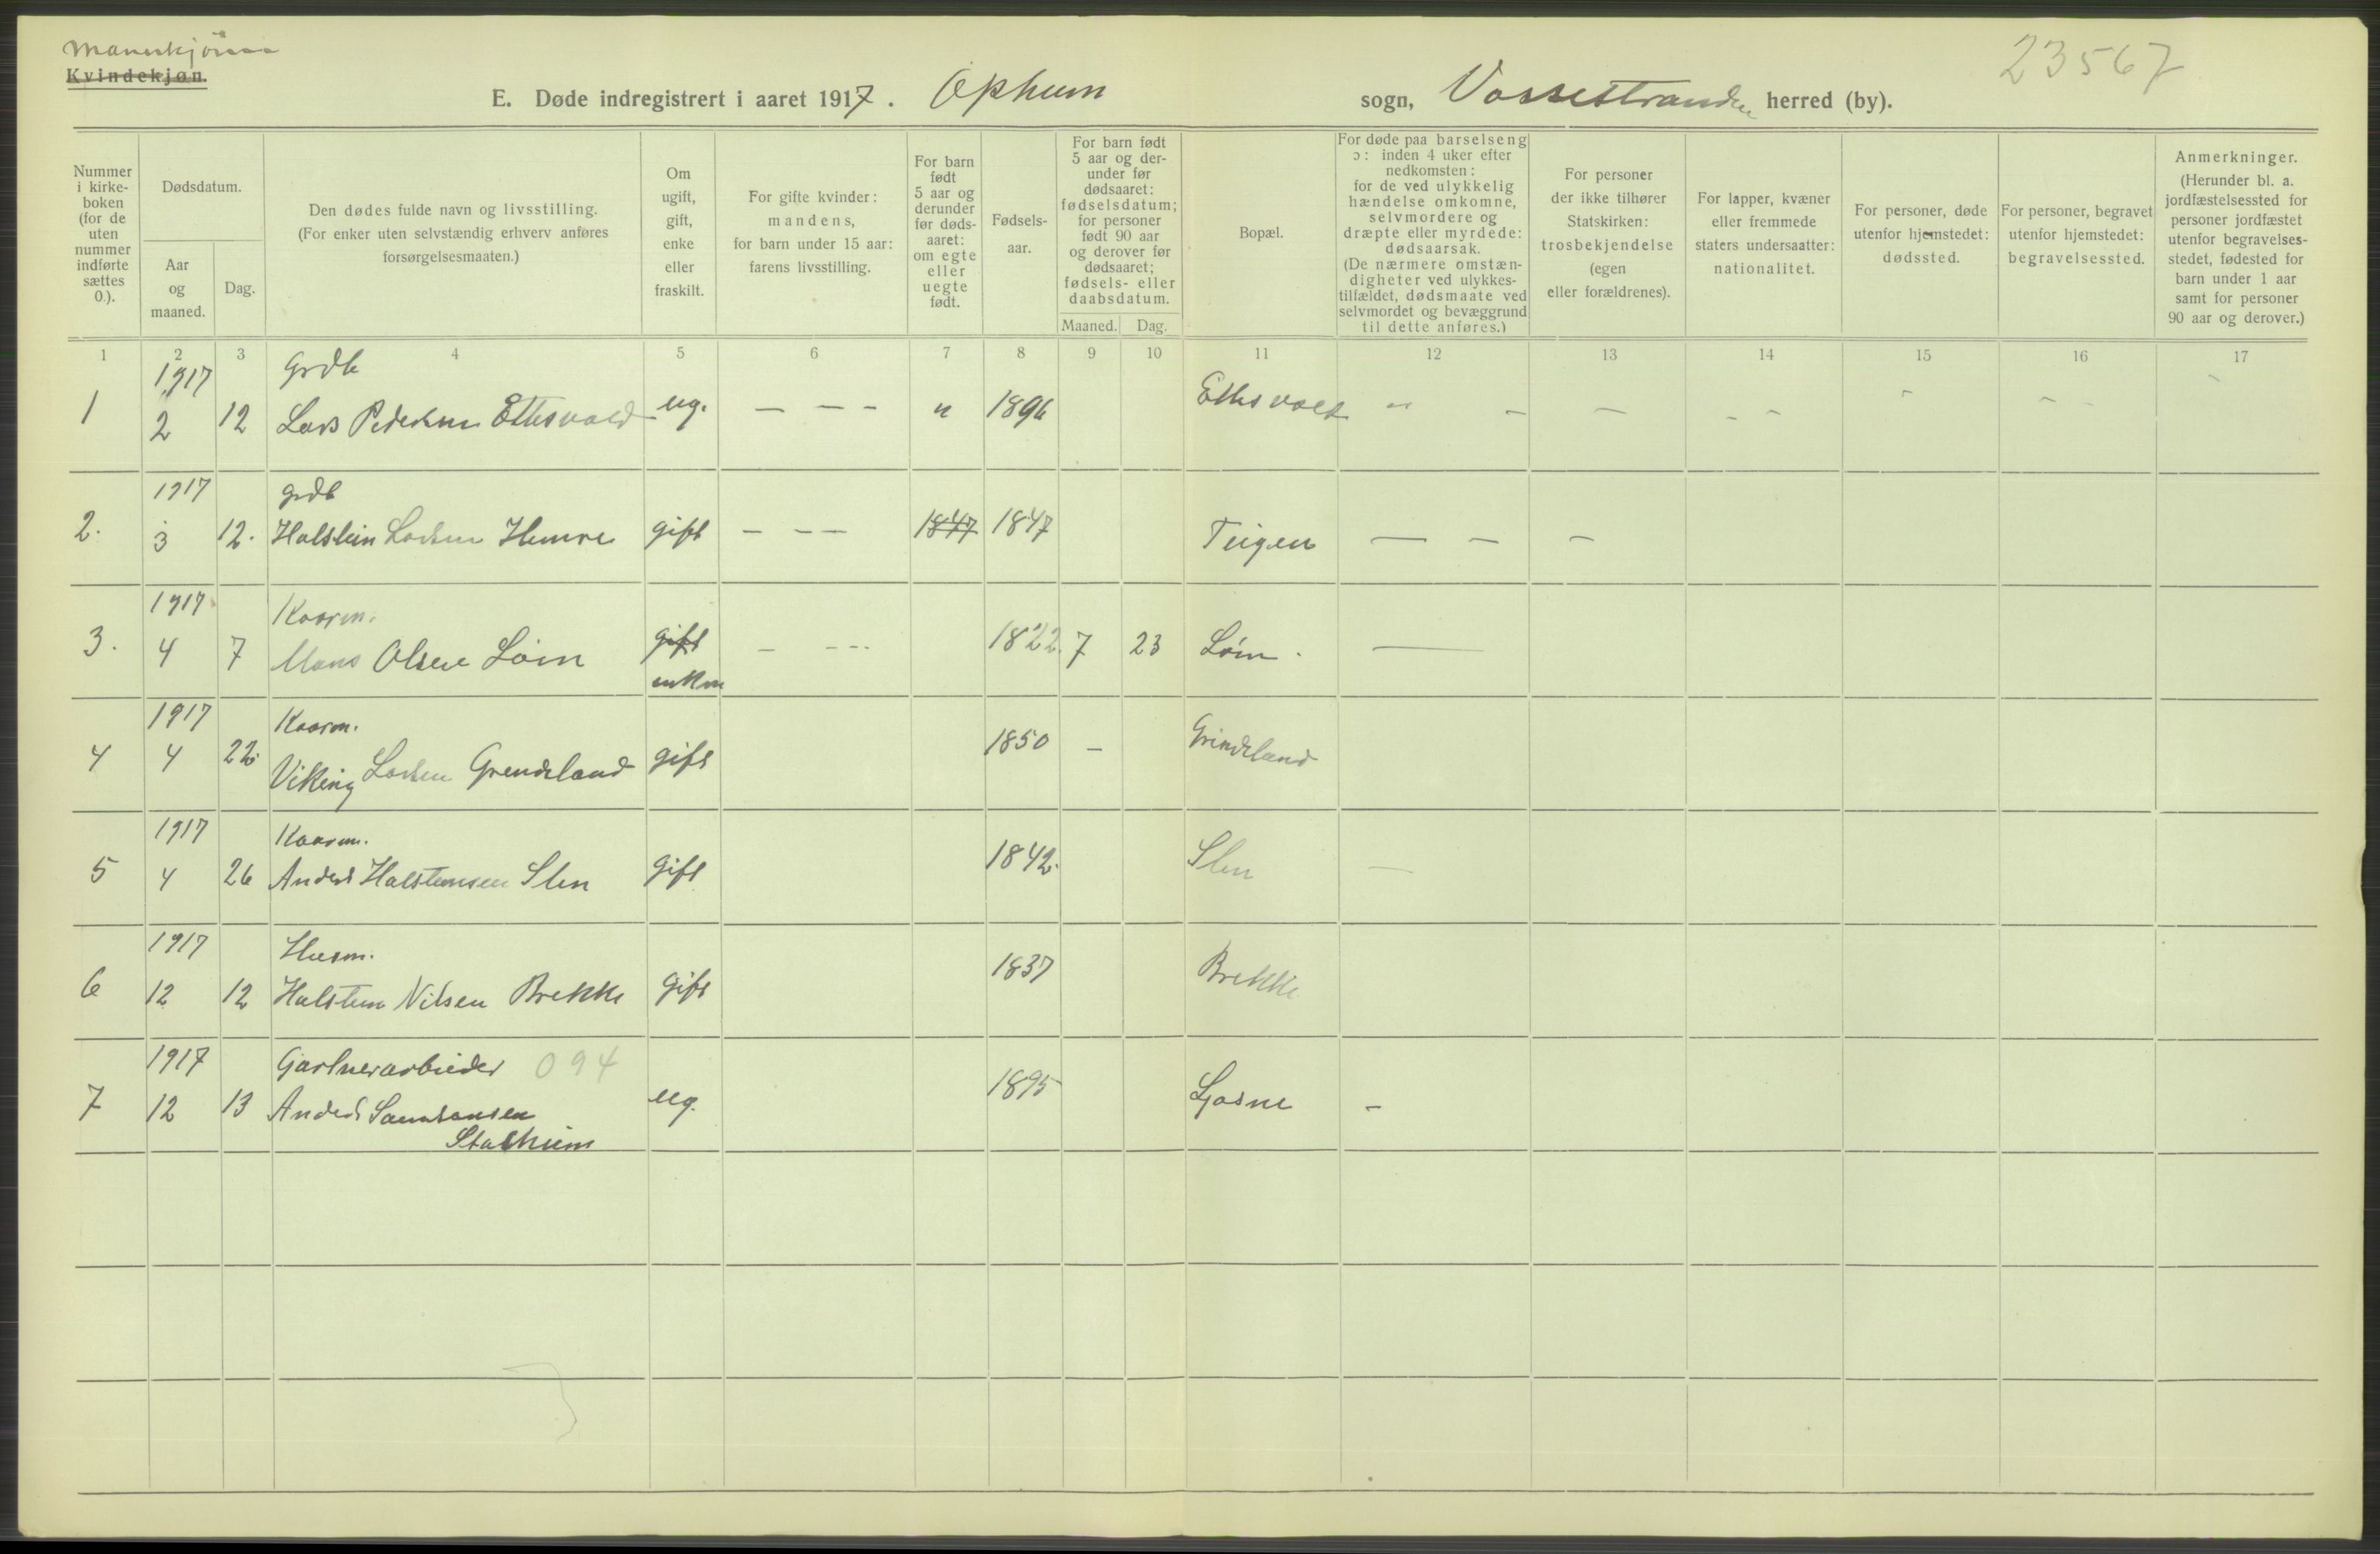 Mandkjøn
Kvindekjøn.
23567
E. Døde indregistrert i aaret 1917. Opheim sogn, Vossestranden herred (by).
Nummer i kirkeboken (for de uten nummer indførte sættes 0.).
Dødsdatum.
Aar og maaned.
Dag.
Den dødes fulde navn og livsstilling.
(For enker uten selvstændig erhverv anføres forsørgelsesmaaten.)
Om ugift, gift, enke eller fraskilt.
For gifte kvinder: mandens, for barn under 15 aar: farens livsstilling.
For barn født 5 aar og derunder før dødsaaret: om egte eller uegte født.
Fødselsaar.
For barn født 5 aar og derunder før dødsaaret: fødselsdatum; for personer født 90 aar og derover før dødsaaret; fødsels- eller daabsdatum.
Maaned. Dag.
Bopæl.
For døde paa barselseng ɔ: inden 4 uker efter nedkomsten: for de ved ulykkelig hændelse omkomne, selvmordere og dræpte eller myrdede: dødsaarsak.
(De nærmere omstændigheter ved ulykkestilfældet, dødsmaate ved selvmordet og bevæggrund til dette anføres.)
For personer der ikke tilhører Statskirken: trosbekjendelse (egen eller forældrenes).
For lapper, kvæner eller fremmede staters undersaatter: nationalitet.
For personer, døde utenfor hjemstedet: dødssted.
For personer, begravet utenfor hjemstedet: begravelsessted.
Anmerkninger.
(Herunder bl. a. jordfæstelsessted for personer jordfæstet utenfor begravelsesstedet, fødested for barn under 1 aar samt for personer 90 aar og derover.)
1 2 3 4 5 6 7 8 9 10 11 12 13 14 15 16 17
1917 Grdb
1 2 12 Lars Pedersen Ettesvold ug. — — — " 1896 Ettesvold " — — — — — — — —
1917 grdb
2. 3 12. Halstein Larsen Hemre gift — — — 1847 1847 Teigen — — —
1917 Kaarm.
3. 4 7 Mons Olsen Løin gift — --- 1822. 7 23 Løin. —
enkm
1917 Kaarm.
4 4 22. Viking Larsen Grendeland gift 1850 — Grindeland
1917 Kaarm.
5 4 26 Anders Halsteinsen Slen gift 1842. Slen —
1917 Husm.
6 12 12 Halstein Nilsen Brekke gift 1837 Brekke
1917 Gartnerarbeider 094
7 12 13 Anders Samsonsen ug. 1895 Gjosne —
Stalheim